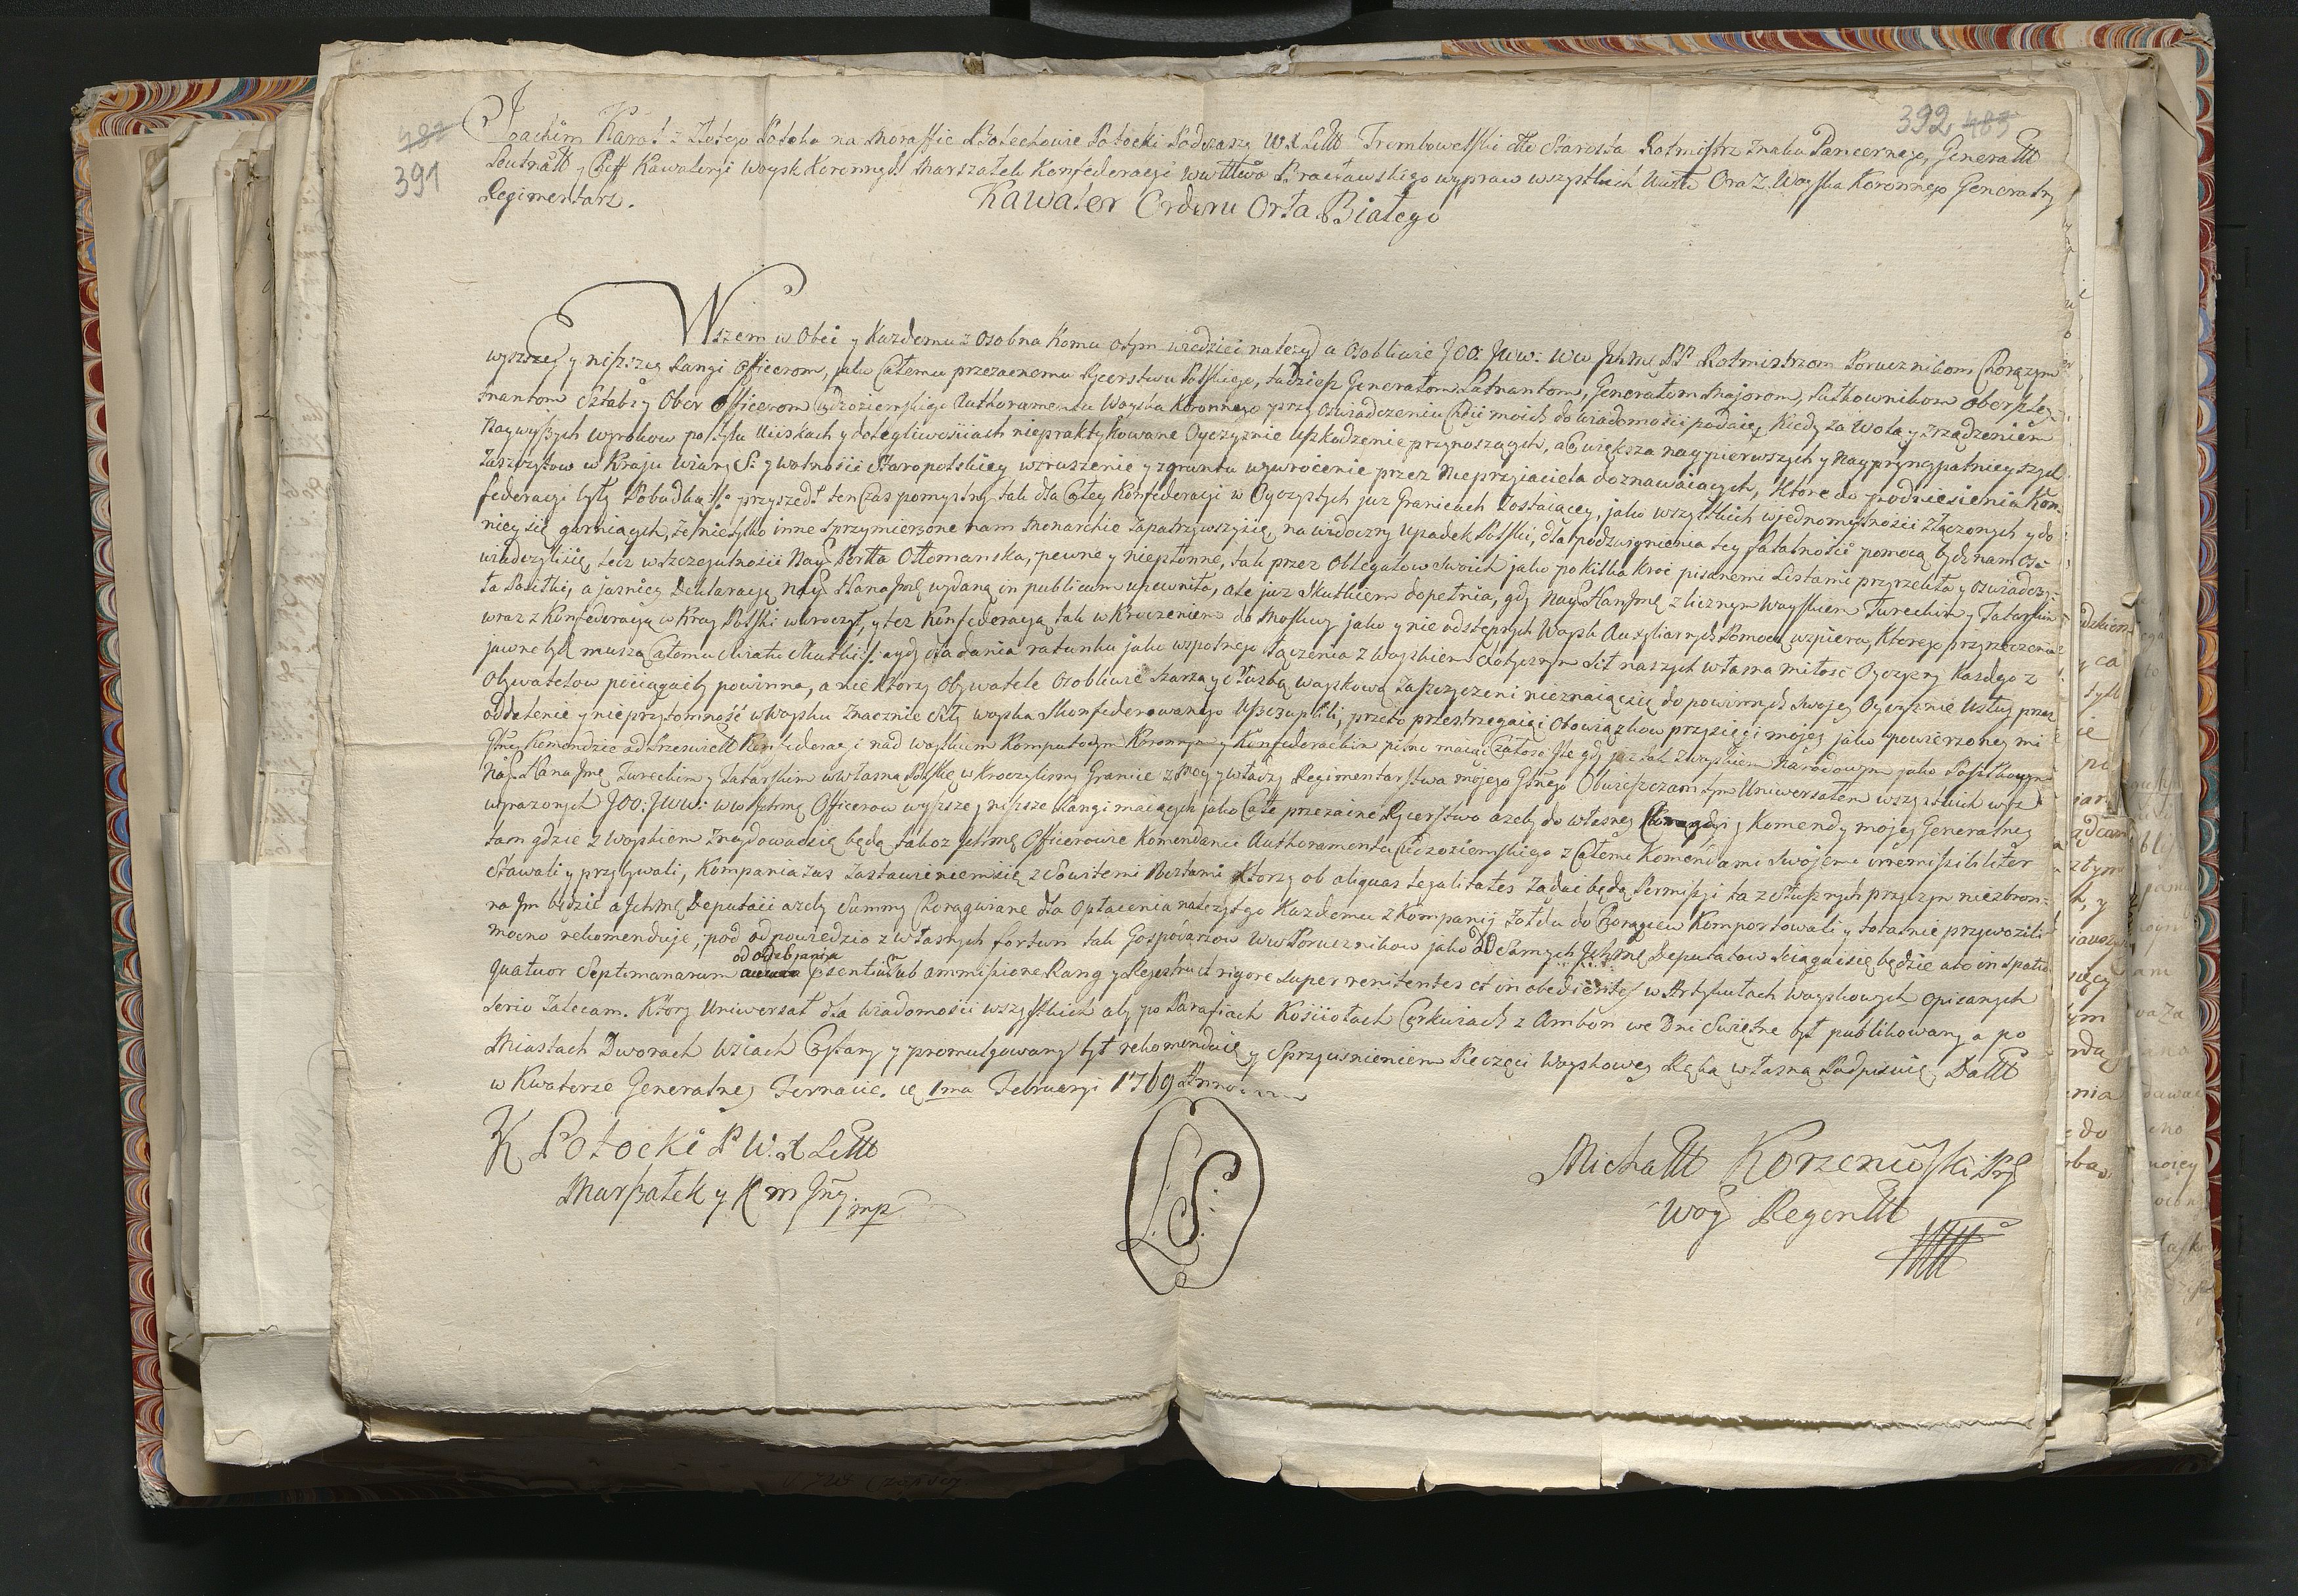 482
391
392 483
Joachim Karol z Złotego Potoka na Moraffie Bołechowie Potocki Podczaszy W. X Litt Trembowelski etc Starosta Rotmistrz Znaku Pancernego, Generałł
Leutnałł y Cheff Kawaleryi Woysk Koronnych Marszałek Konfederacyi Wwttwa Bracławskiego wypraw wszystkich Wuttw Oraz Woyska Koronnego Generalny
Regimentarz.
Kawaler Orderu Orła Białego
Wszem w Obec y Kazdemu z Osobna Komu otym wiedziec nalezy a Osobliwie JOO: Jww: Ww Jchmę PP Rotmistrzom Porucznikom Chorązym
wyszszey y niższey Rangi Officerom, jako Całemu przezacnemu Rycerstwu Polskiego, tudziesz Generałom Leutnantom, Generałom Majorom, Pułkownikom Oberszley-
tnantom Sztabs y Ober Officerom Cudzoziemskiego Authoramentu Woyska Koronnego przy oswiadczeniu Chęci moich do wiadomosci podaię, Kiedy za Wolą y Zrządzeniem
Naywyższych wyrokow po tylu Uciskach y dolegliwosciach niepraktykowane Oyczyznie Uszkodzenie przynoszących, a Co większa naypierwszych y Naypryncypalnieyszych
Zaszczytow w Kraju wiary S. y wolności Staropolskiey wzruszenie y zgruntu wywrócenie przez Nieprzyiaciela doznawaiących, Które do podniesienia Kon-
federacyi były Pobudką :/: przyszedł ten Czas pomyslny tak dla Całey Konfederacyi w Oyczystych juz Granicach Zostaiącey, jako wszystkich wjednomyslności Złączonych y do
niey się garniących, że nietylko inne Sprzymierzone nam Monarchie Zapatrzywszysię, na widoczny upadek Polski, dla podzwignienia tey fatalności pomocą bydz nam Osw
wiadczyli się, lecz wszczegulności Nay: Portta Ottomanska, pewne y niepłonne, tak przez Oblegatow Swoich jako po kilka kroć pisanemi Listami przyrzekła y oswiadczy-
ła Posiłki, a jasniey Deklaracyą Nay: Hana Jmę wydaną in publicum upewniła, ale juz Skutkiem dopełnia, gdy Nay: Han Jmę z licznym Woyskiem Tureckim y Tatarskim
wraz z Konfederacyą w Kray Polski wkroczył, y tez Konfederacyą tak w Kroczeniem do Moskwy jako y nie odstępnych Woysk Auxyliarnych Pomocą wspiera, Ktorego przyrzeczenia
jawne bydz muszą Całemu Swiatu Skutki :/: a gdy dla dania ratunku jako wspolnego łączenia z Woyskiem Sił naszych własna miłość Oyczyzny Kazdego z
Obywatelow pociągaćby powinna, a niektórzy Obywatele Osobliwie Szarzą y Służbą woyskową Zaszczyceni nieznaiącsię do powinnych Swojey Oyczyznie Usług przez
oddalenie y nieprzytomność w Woysku Znacznie Siły woyska Skonfederowanego Uszczuplili; przeto przestrzegaiąc Obowiązkow przysięgi mojey jako powierzoney mi
Gney Komendzie od Przeswiett Konfederacyi nad woyskiem Komputowym Koronnym y Konfederackim pilne maiąc gdy juz tak z Woyskiem Narodowym jako Posiłkowym
Nay: Hana Jmę Tureckim y Tatarskim w własną Polskę wkroczylismy Granice z mocy y władzy Regimentarstwa mojego Gnego Obwieszczam tym Uniwersałem wszystkich wyż
wyrazonych JOO: Jww: Ww Jchmę Officerow wyższe y niższe Rangi maiących jako Całe przezacne Rycerstwo azeby do własney y Komendy mojey Generalney
tam gdzie z Woyskiem Znaydowac się będę takoz Jchmę Officerowie Komendanci Authoramentu Cudzoziemskiego z Całemi Komendami Swojemi irremisibiliter
Stawali y przybywali, Kompania zas Zastawieniem się z Sowitemi Pocztami Ktorzy ob aliquas legalitates Ządać będą Permissyi ta z słusznych przyczyn niezbron-
na Jm będzie a Jchmę Deputaci azeby Summy Chorągwiane dla Opłacenia należytego Kazdemu z Kompanij Zołdu do Chorągiew Komportowali y totalnie przywozili
mocno rekomenduję; pod odpowiedzią z własnych fortun tak Gospodarzow Ww Porucznikow jako Od Samych Jchmę Deputatow Sciągać się będzie a to in Spatio
od odebrania
quatuor Septimanarum psentium Sub ammisione Rang y Rejestru et rigore Super renitentes et in obedientes w Artykułach Woyskowych Opisanych
Serio Zalecam. Ktory Uniwersał dla Wiadomości wszystkich aby po Parafiach Kościołach Cerkwiach z Ambon we Dni Swiętne był publikowany a po
Miastach Dworach Wsiach Czytany y promulgowany był rekomenduię y Sprzycisnieniem Pieczęci Woyskowey Ręką własną Podpisuię, Dałł
w Kwaterze Generalney Ternawce. ię 1ma Februarji 1769 Anno.
K Potocki P W. X Litt
Marszałek y R m Gny mp
L. S.
Michałł Korzeniowski Pis
Woy Regenłł